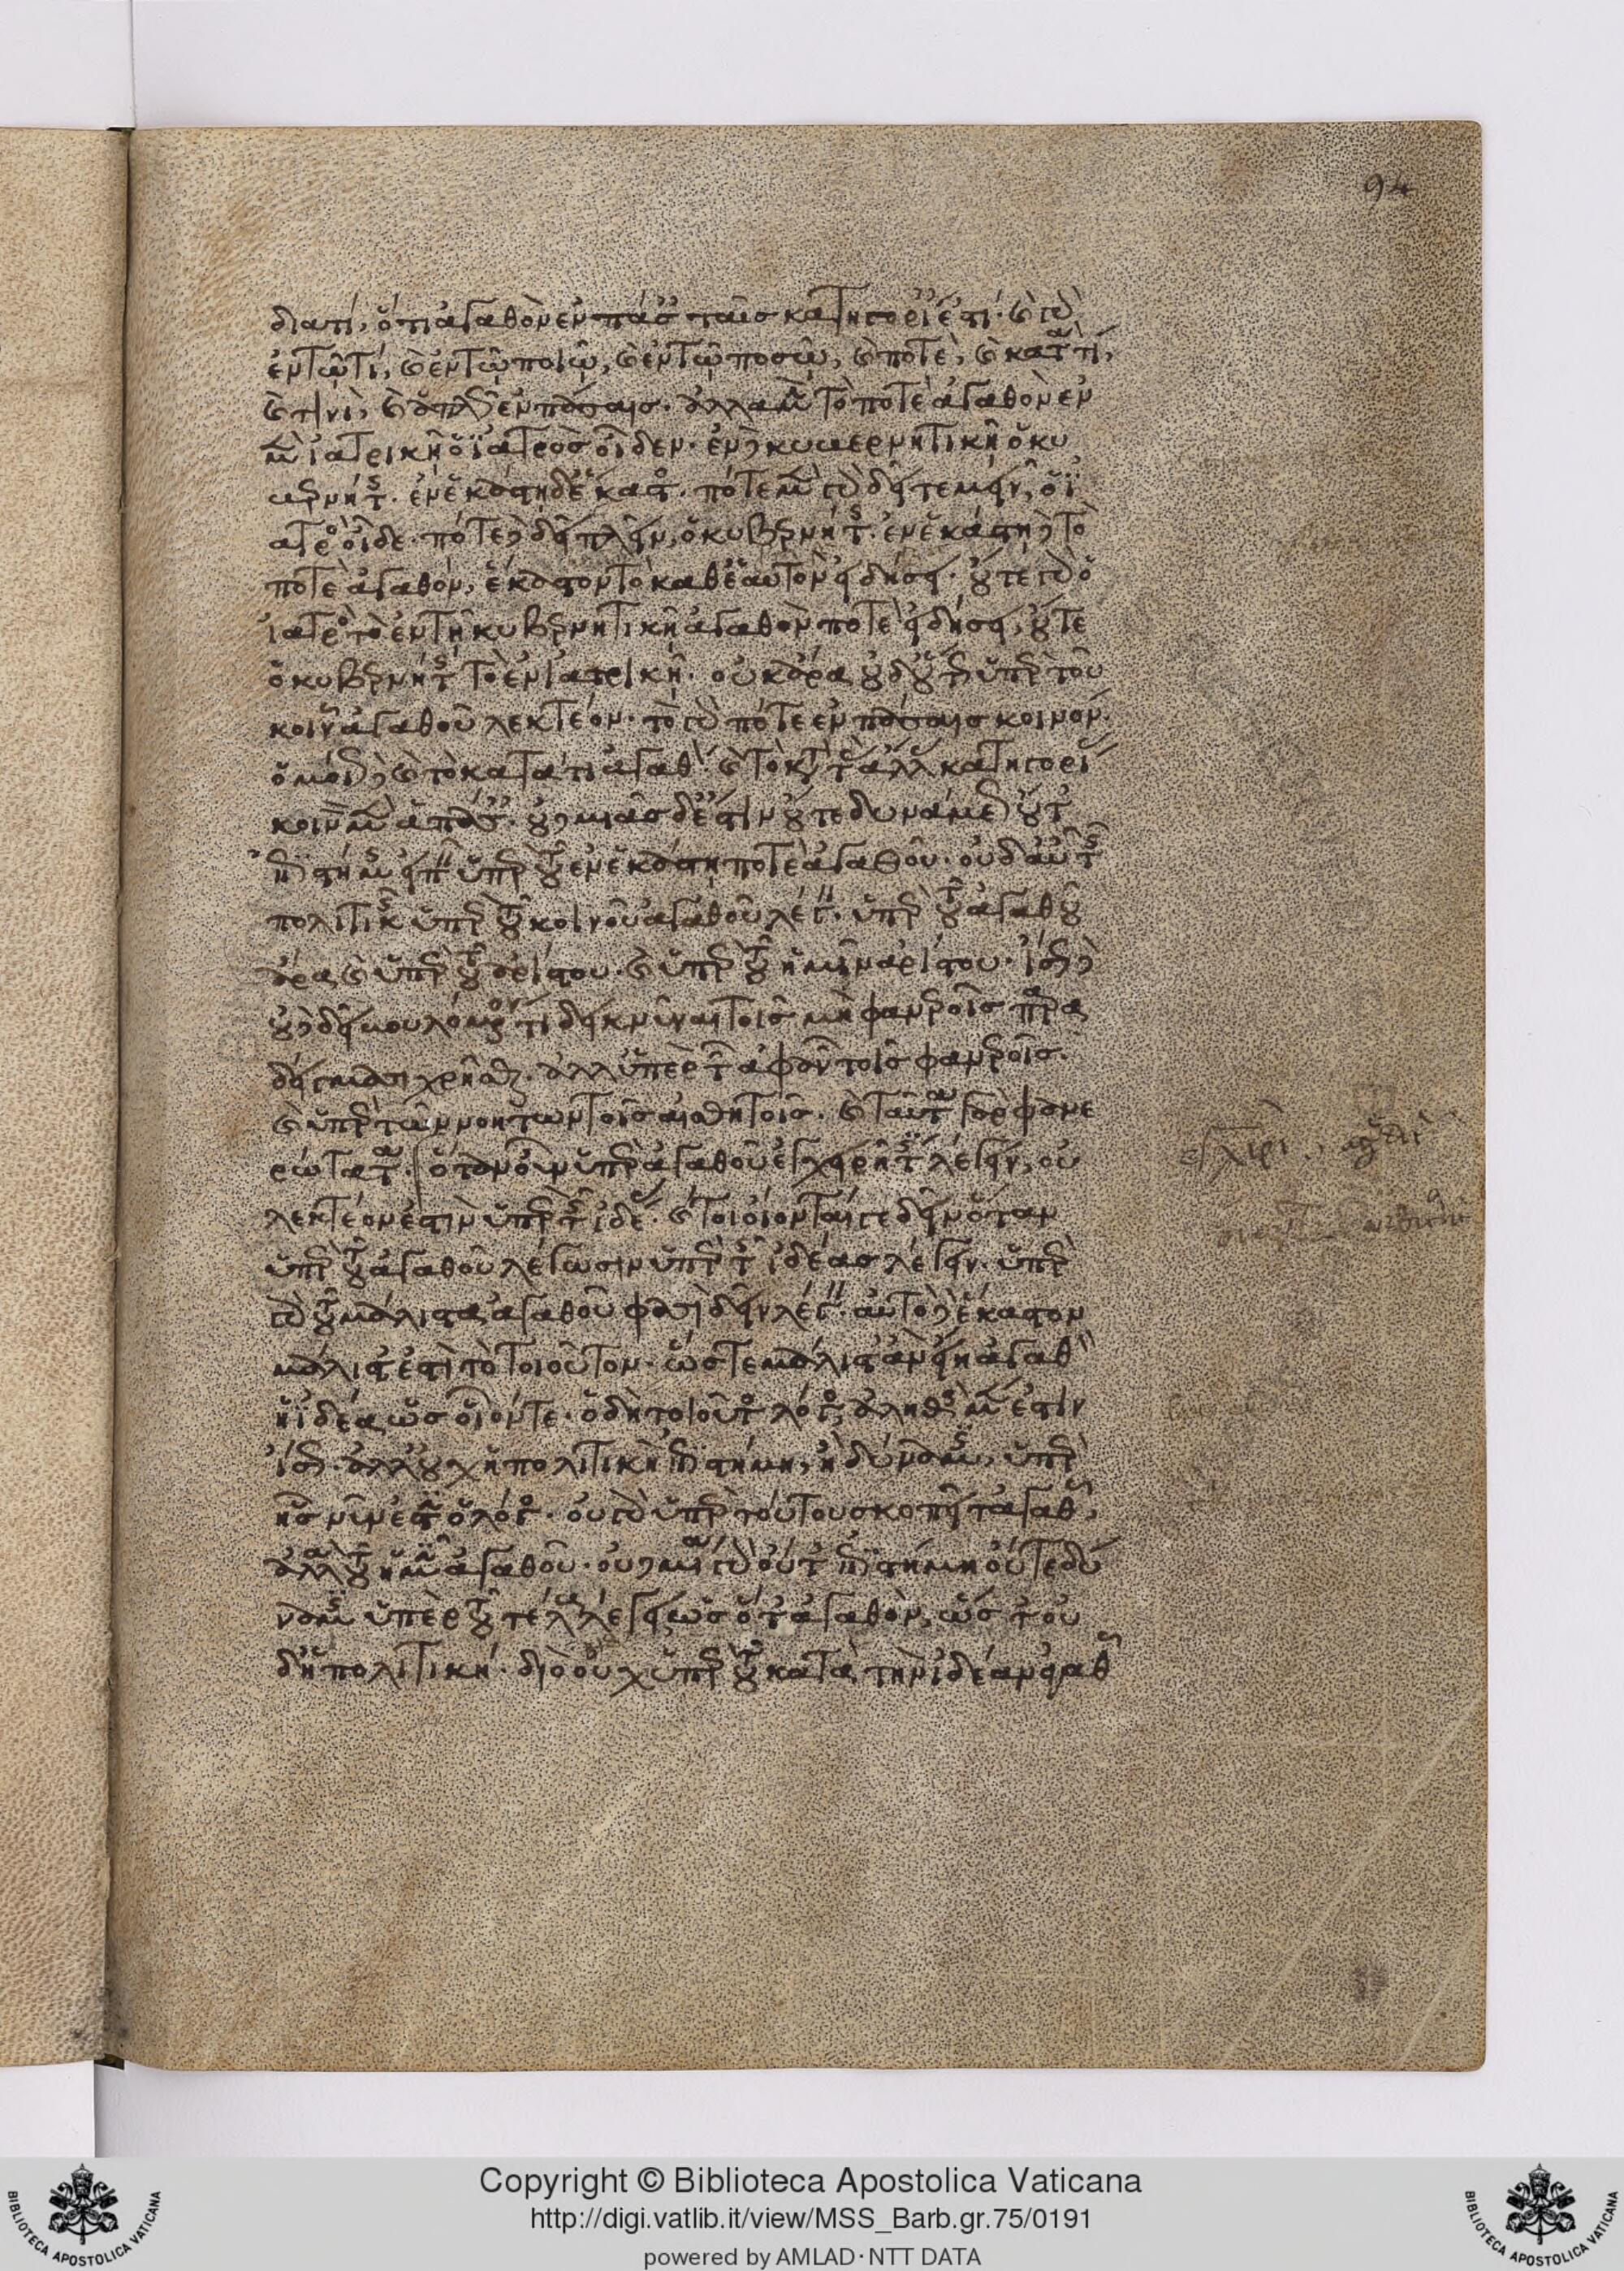 94
διατί, ὅτι ἀγαθὸν ἐν πάσ ταῖς κατηγορί ἐστι· καὶ γὰρ
ἐν τῷ τί, καὶ ἐν τῷ ποιῷ, καὶ ἐν τῷ ποσῷ, καὶ ποτὲ, καὶ πρός τί,
καὶ τινὶ, καὶ ἁπλῶς ἐν πάσαις. ἀλλὰ μὴν τὸ ποτὲ ἀγαθὸν ἐν
μὲν ἰατρικῇ ὁ ἰατρὸς οἶδεν. ἐν δὲ κυβερνητικῇ ὁ κυ
βερνήτης. ἐν ἑκάστῃ δὲ ἕκαστος. πότε μὲν γὰρ δεῖ τεμεῖν, ὁ ἰ
ατρὸς οἶδε. πότε δὲ δεῖ πλεῖν, ὁ κυβερνήτης. ἐν ἑκάστῃ δὲ τὸ
ποτὲ ἀγαθὸν, ἕκαστον τὸ καθ' ἑαυτὸν εἰδήσει. οὔτε γὰρ ὁ
ἰατρὸς τὸ ἐν τῇ κυβερνητικῇ ἀγαθὸν ποτὲ εἰδήσει, οὔτε
ὁ κυβερνήτης τὸ ἐν ἰατρικῇ. οὐκ ἄρα οὐδ' οὕτως ὑπὲρ τοῦ
κοινοῦ ἀγαθοῦ λεκτέον. τὸ γὰρ πότε ἐν πάσαις κοινόν.
ὁμοίως δὲ καὶ τὸ κατὰ τι ἀγαθ. καὶ τὸ κατὰ τὰς ἄλλας κατηγορί
κοινὸν μὲν ἁπάσαις. οὐδεμιᾶς δ' ἐστὶν οὔτε δυνάμεως οὔτε
ἐπιστήμης εἰπεῖν ὑπὲρ τοῦ ἐν ἑκάστῃ ποτὲ ἀγαθοῦ. οὐδ' αὖ τῆς
πολιτικῆς ὑπὲρ τοῦ κοινοῦ ἀγαθοῦ λέγειν. ὑπὲρ τοῦ ἀγαθοῦ
ἄρα, καὶ ὑπὲρ τοῦ ἀρίστου. καὶ ὑπὲρ τοῦ ἡμῖν ἀρίστου. ἴσως δὲ
οὐ δεῖ βουλόμενόν τι δεικνύναι τοῖς μὴ φανεροῖς παρα
δείγμασι χρῆσθαι. ἀλλ' ὑπὲρ τῶν ἀφανῶν τοῖς φανεροῖς.
καὶ ὑπὲρ τῶν νοητῶν τοῖς αἰσθητοῖς. καὶ ταῦτα γὰρ φανε
ρώτατα. ὅταν οὖν ὑπὲρ ἀγαθοῦ ἐγχειρῇ τις λέγειν, οὐ
λεκτέον ἐστὶν ὑπὲρ τῆς ἰδέας. καίτοι οἴονταί γε δεῖν ὅταν
ὑπὲρ τοῦ ἀγαθοῦ λέγωσιν ὑπὲρ τῆς ἰδέας λέγειν. ὑπὲρ
γὰρ τοῦ μάλιστα ἀγαθοῦ φασὶ δεῖν λέγειν. αὐτὸ δὲ ἕκαστον
μάλιστ' ἐστὶ τὸ τοιοῦτον. ὥστε μάλιστ' ἂν εἴη ἀγαθὸν
ἡ ἰδέα, ὡς οἴονται. ὁ δὴ τοιοῦτος λόγος ἀληθὴς μέν ἐστιν
ἴσως. ἀλλ' οὐχ ἡ πολιτικὴ ἐπιστήμη, ἢ δύναμις, ὑπὲρ
ἧς νῦν ἐστὶν ὁ λόγος. οὐ γὰρ ὑπὲρ τούτου σκοπεῖ τἀγαθοῦ,
ἀλλὰ τοῦ ἡμῖν ἀγαθοῦ. οὐδεμία γὰρ οὔτ' ἐπιστήμη οὔτε δύ
ναμις ὑπὲρ τοῦ τέλους λέγει, ὡς ὅτι ἀγαθὸν, ὥστ' οὐ
δ' ἡ πολιτική. διὸ οὐχ ὑπὲρ τοῦ κατὰ τὴν ἰδέαν ἀγαθοῦ
Copyright © Biblioteca Apostolica Vaticana
http://digi.vatlib.it/view/MSS_Barb.gr.75/0191
powered by AMLAD·NTT DATA
BIBLIOTECA APOSTOLICA VATICANA
BIBLIOTECA APOSTOLICA VATICANA